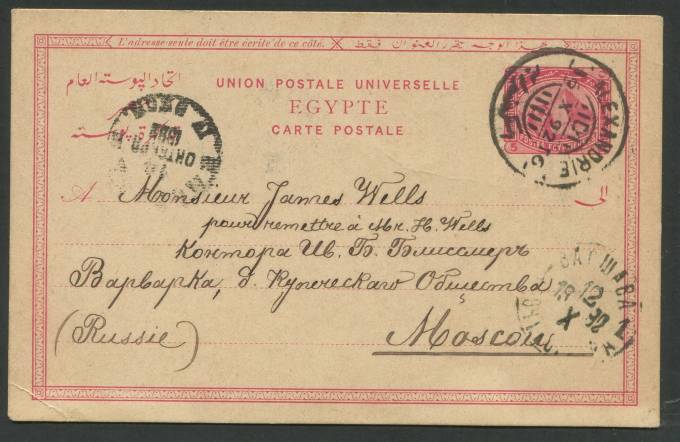 L'adresse seule doit être écrite de ce côté.
هذا الوجه يحرر العنوان فقط
اتحاد البوسته العام
UNION POSTALE UNIVERSELLE
EGYPTE
CARTE POSTALE
ALEXANDRIE
A Monsieur James Wells الى
pour remettre à Mr. H. Wells
Контора Ив. Б. Блиссмеръ
Варварка, д. Купеческаго Общества
(Russie) Moscou
ВАРШАВА
12
X 92
1